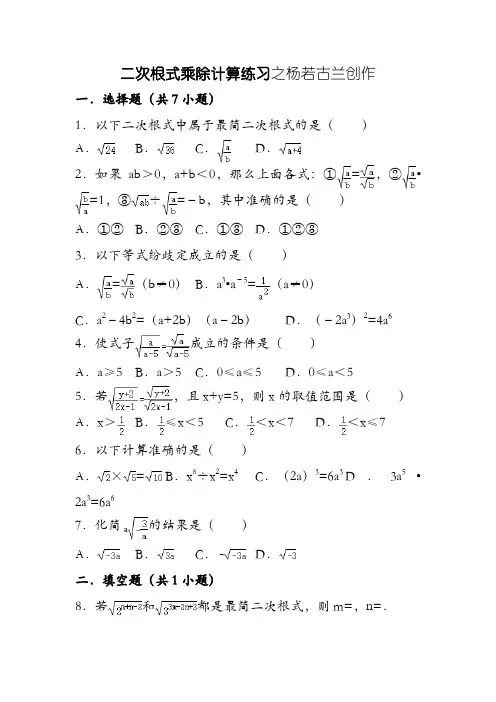 二次根式乘除计算练习之杨若古兰创作
一.选择题（共7小题）
1.以下二次根式中属于最简二次根式的是（ ）
A.√24 B.√36 C.√(a/b) D.√(a+4)
2.如果 ab＞0，a+b＜0，那么上面各式：①√(a/b)=√a/√b，②√(a/b)•
√(b/a)=1，③√ab÷√(a/b)=﹣b，其中准确的是（ ）
A.①② B.②③ C.①③ D.①②③
3.以下等式纷歧定成立的是（ ）
A.√(a/b)=√a/√b（b≠0） B.a³•a⁻⁵=1/a²（a≠0）
C.a²﹣4b²=（a+2b）（a﹣2b） D.（﹣2a³）²=4a⁶
4.使式子√(a/(a-5))=√a/√(a-5)成立的条件是（ ）
A.a≥5 B.a＞5 C.0≤a≤5 D.0≤a＜5
5.若√((y+2)/(2x-1))=√(y+2)/√(2x-1)，且 x+y=5，则 x 的取值范围是（ ）
A.x＞1/2 B.1/2≤x＜5 C.1/2＜x＜7 D.1/2＜x≤7
6.以下计算准确的是（ ）
A.√2×√5=√10 B.x⁸÷x²=x⁴ C.（2a）³=6a³ D . 3a⁵ •
2a³=6a⁶
7.化简a√(-3/a)的结果是（ ）
A.√(-3a) B.√3a C.-√(-3a) D.√-3
二.填空题（共1小题）
8.若√(2^(m+n-2))和√(3^(3m-2n+2))都是最简二次根式，则 m=，n=.